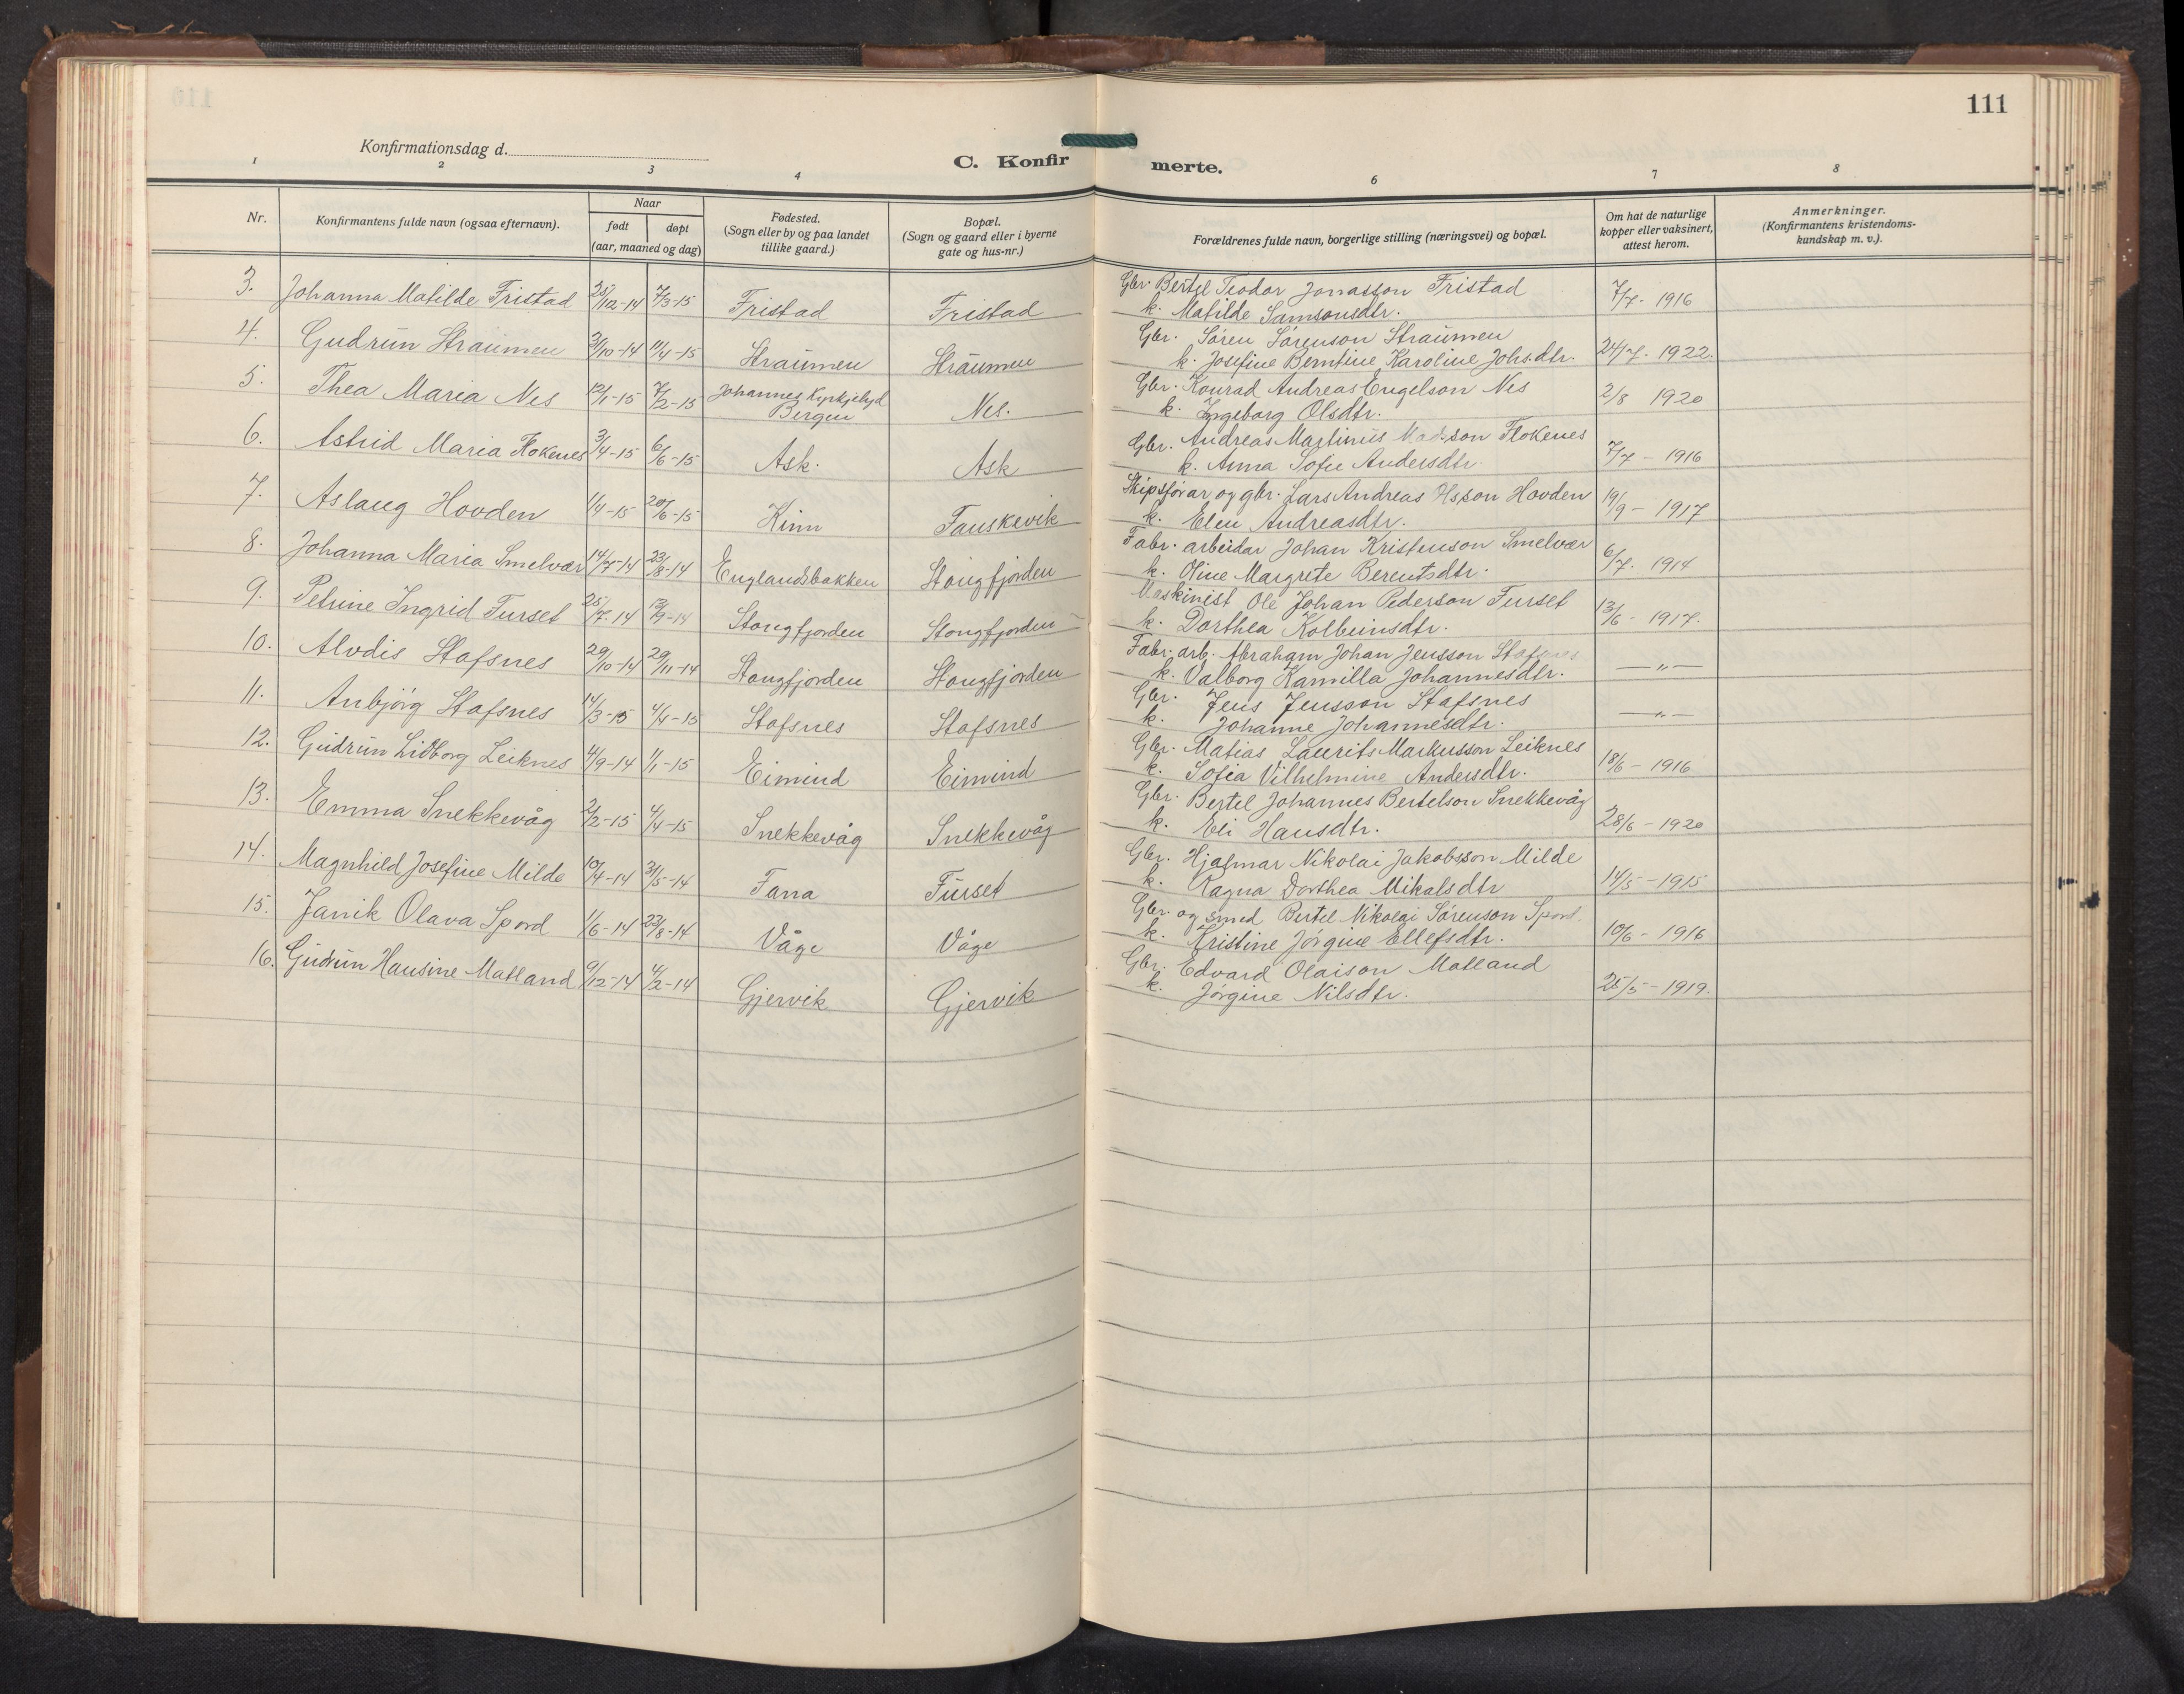 111
Konfirmationsdag d.
C. Konfirmerte.
1 2 3 4 6 7 8
Nr.
Konfirmantens fulde navn (ogsaa efternavn).
Naar
født
døpt
(aar, maaned og dag)
Fødested.
(Sogn eller by og paa landet
tillike gaard.)
Bopæl.
(Sogn og gaard eller i byerne
gate og hus-nr.)
Forældrenes fulde navn, borgerlige stilling (næringsvei) og bopæl.
Om hat de naturlige
kopper eller vaksinert,
attest herom.
Anmerkninger.
(Konfirmantens kristendoms-
kundskap m. v.).
3. Johanna Matilde Fristad 28/12-14 7/3-15 Fristad Fristad Gbr. Bertel Teodor Jonasson Fristad
k. Matilde Samsonsdtr. 7/7- 1916
4. Gudrun Straumen 31/10-14 11/4-15 Straumen Straumen Gbr. Søren Sørenson Straumen
k. Josefine Berntine Karoline Johs.dtr. 24/7- 1922.
5. Thea Maria Nes 12/1-15 7/2-15 Johannes Kyrkjelyd
Bergen Nes. Gbr. Konrad Andreas Engelson Nes
k. Ingeborg Olsdtr. 2/8 1920
6. Astrid Maria Flokenes 3/4-15 6/6-15 Ask. Ask Gbr. Andreas Martinus Madsson Flokenes
k. Anna Sofie Andersdtr. 7/7- 1916
7. Aslaug Hovden 1/4-15 20/6-15 Kinn Fauskevik Skipsførar og gbr. Lars Andreas Hovden
k. Elen Andreasdtr. 19/9- 1917
8. Johanna Maria Smelvær 14/7-14 23/8-14 Englandsbakken Stongfjorden Fabr. arbeidar Johan Kristenson Smelvær
k. Oline Margrete Berentsdtr. 6/7. 1914
9. Petrine Ingrid Furset 25/7-14 13/9-14 Stongfjorden Stongfjorden Maskinist Ole Johan Pederson Furset
k. Dorthea Kolbeinsdtr. 13/6- 1917.
10. Alvdis Stafsnes 29/10-14 29/11-14 Stongfjorden Stongfjorden Fabr. arb. Abraham Johan Jensson Stafsnes
k. Valborg Kamilla Johannesdtr. — „ —
11. Anbjørg Stafsnes 14/3-15 4/4-15 Stafsnes Stafsnes Gbr. Jens Jensson Stafsnes
k. Johanne Johannesdtr. — „ —
12. Gudrun Lidborg Leiknes 4/9-14 1/1-15 Eimind Eimind Gbr. Matias Laurits Markusson Leiknes
k. Sofia Vilhelmine Andersdtr. 18/6- 1916
13. Emma Snekkevåg 2/2-15 4/4-15 Snekkevåg Snekkevåg Gbr. Bertel Johannes Bertelson Snekkevåg
k. Eli Hansdtr. 28/6- 1920
14. Magnhild Josefine Milde 10/4-14 31/5-14 Fana Furset Gbr. Hjalmar Nikolai Jakobsson Milde
k. Ragna Dorthea Mikalsdtr 14/5- 1915
15. Janik Olava Spord 1/6-14 23/8-14 Våge Våge Gbr. og smed Bertel Nikolai Sørenson Spord.
k. Kristine Jørgine Ellefsdtr. 10/6- 1916
16. Gudrun Hansine Matland 9/12-14 4/2-14 Gjervik Gjervik Gbr. Edvard Olaison Matland
k. Jørgine Nilsdtr. 25/5- 1919.